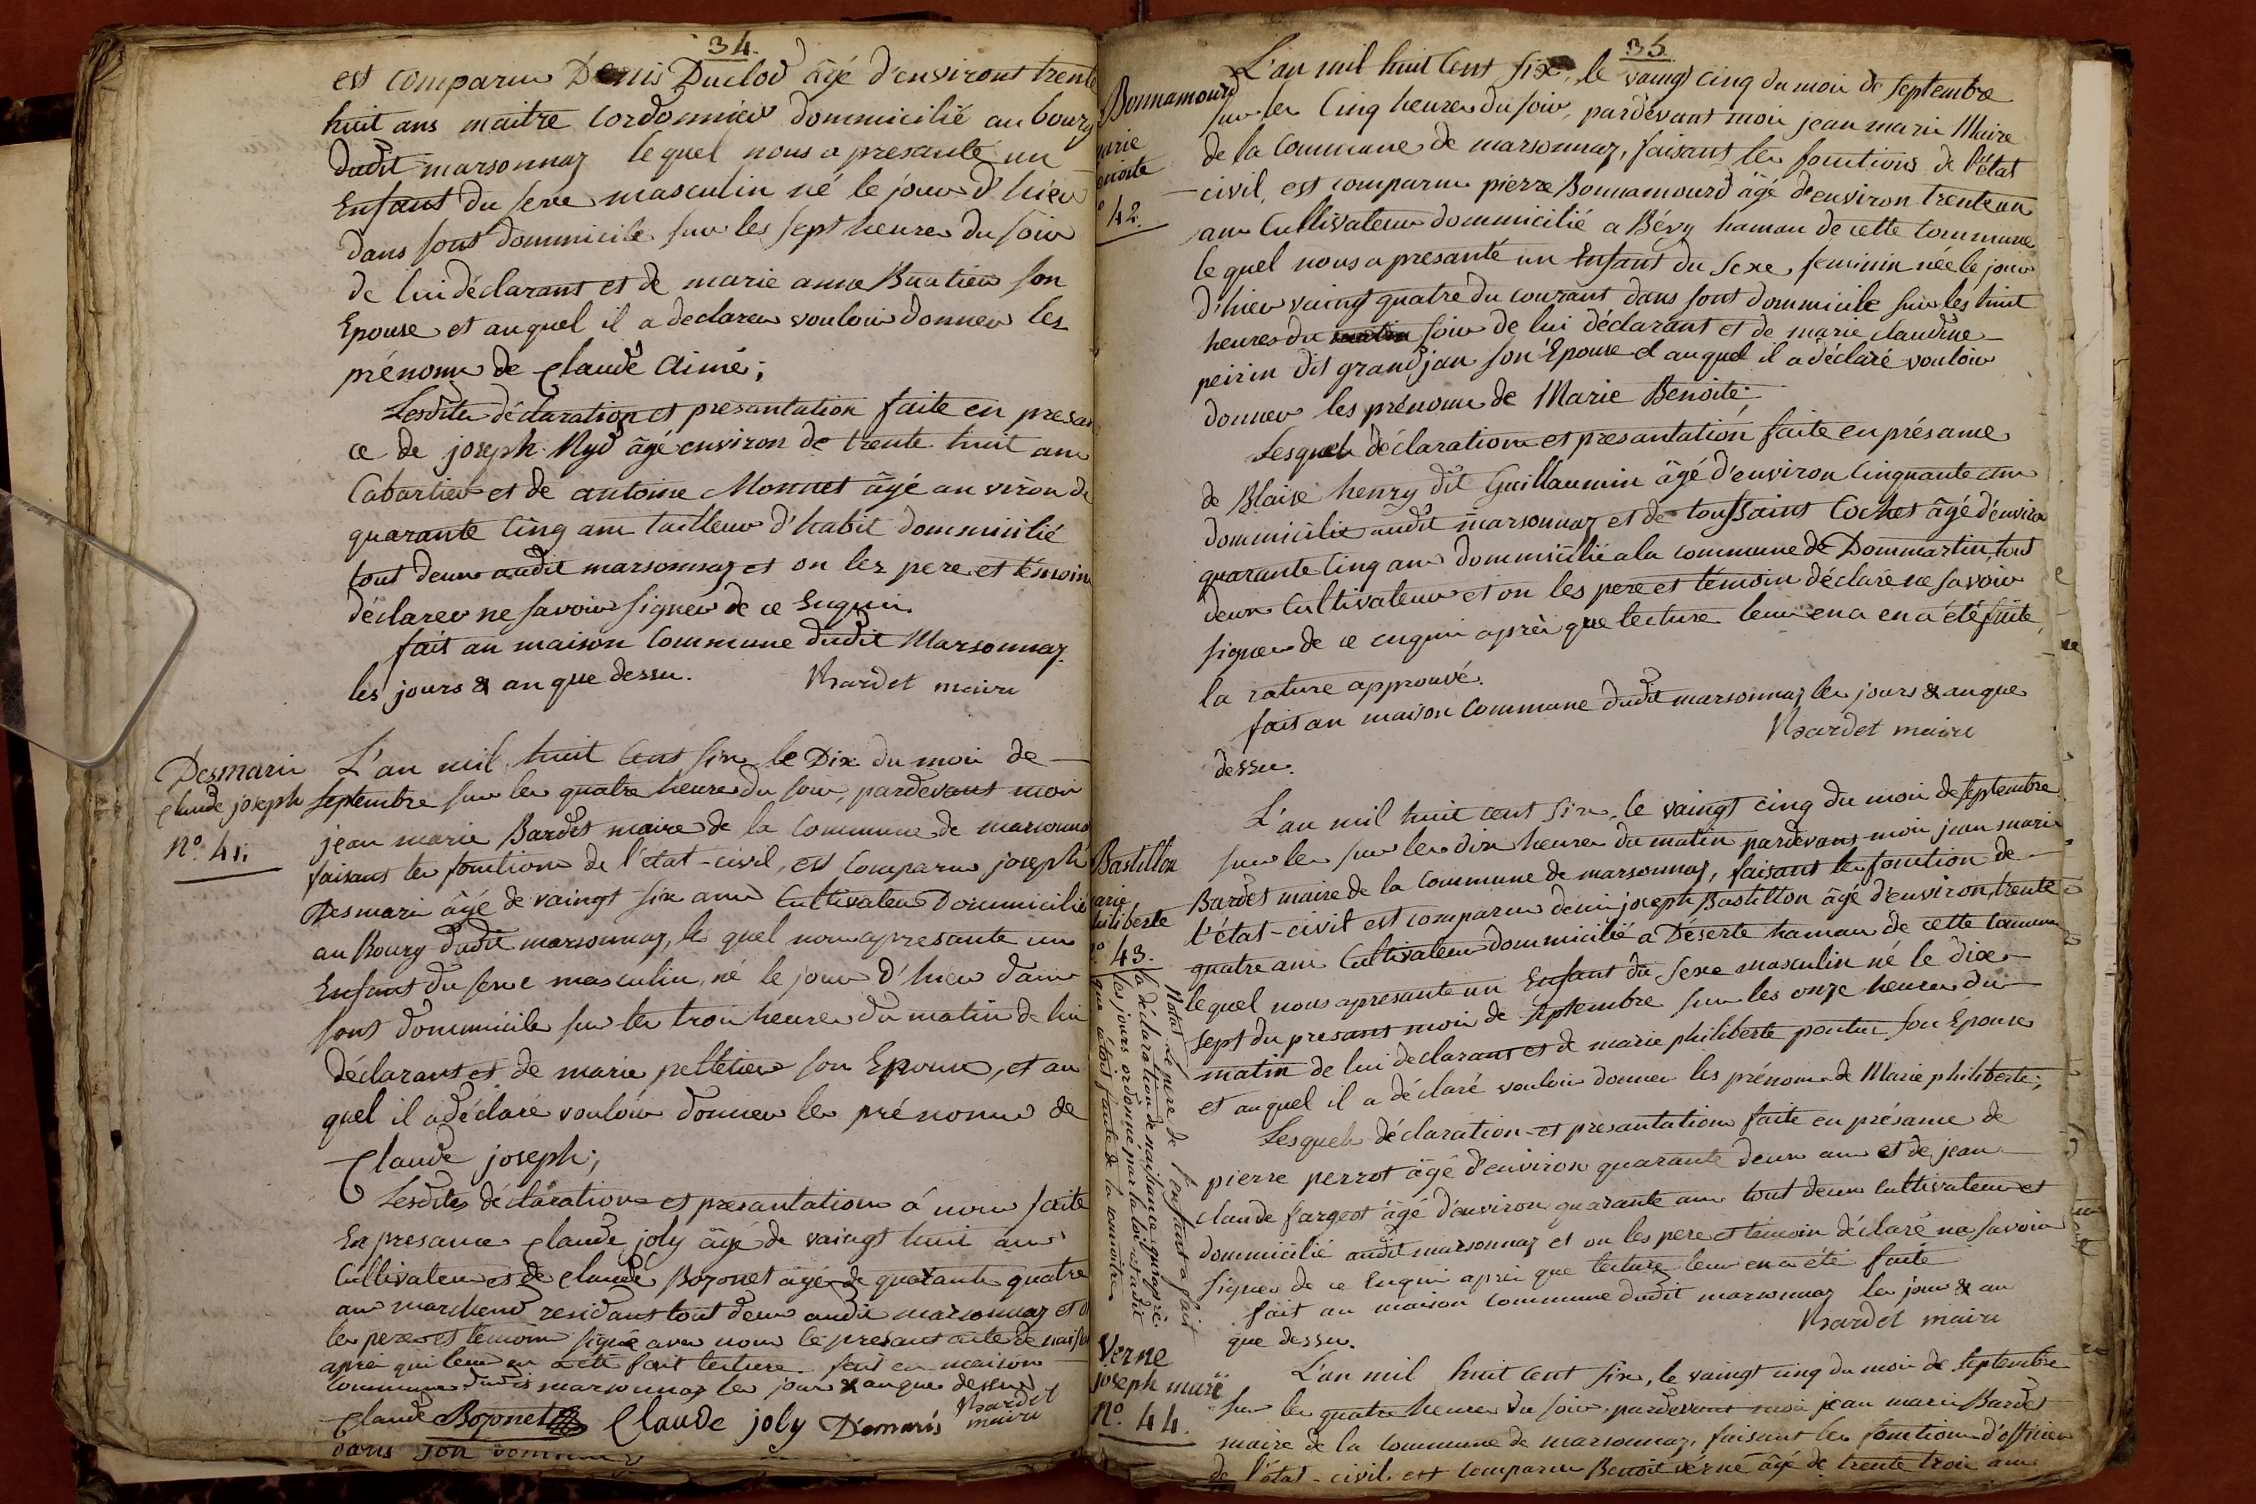 34.
est comparu Denis Duclod âgé d'environt trente
huit ans maitre Cordonnier dommicilié au bourg
dudit marsonnaz lequel nous a presanté un
Enfant du sexe masculin né le jour d'hier
dans sont dommicile sur les sept heures du soir
de lui déclarant et de marie anne Buatier son
Epouse et auquel il a declarer vouloir donner les
prénoms de Claude Aimé;
Lesdite déclaration et presantation faite en presan
ce de joseph Nyd âgé environ de trente huit ans
Cabartier et de antoine Monnet âgé anviron de
quarante Cinq ans tailleur d'habit dommicilié
tout deux audit marsonnaz et on lez pere et témoins
déclarer ne savoir signer de ce Enquis
fait an maison Commune dudit Marsonnaz
les jours & an que dessu.
Bardet maire
Desmaris
Claude joseph
N°. 41.
L'an mil huit Cent six le Dix du mois de
septembre sur les quatre heures du soir, pardevant moi
jean marie Bardet maire de la Commune de marsonna
faisant les fonctions de l'état-civil, est Comparu joseph
Desmari âgé de vaingt six ans Cultivateur Dommicilié
au Bourg dudit marsonnaz, le quel nous a presante un
Enfant du sexe masculin, né le jour d'hier dans
sont dommicile sur les trois heures du matin de lui
déclarant et de marie pelletier son Epouse, et au
quel il a déclaré vouloir donner les prénoms de
Claude joseph;
Lesdites déclarations et presantations à nous faite
En presance Claude joly âgé de vaingt huit ans
Cultivateur et de Claude Bozonet âgé de quarante quatre
ans marchend residant tout deux audit marsonnaz et
les pere et temoins signé avec nous le presant acte de naissa
après qui leur en a été fait lecture. fait en maison
Commune dudit marsonnaz les jours & an que dessu
Bardet
maire
Claude Bozonet Claude joly Démaris
dans son
35.
Bonnamourd
marie
benoite
N° 42.
L'an mil huit Cent six, le vaingt cinq du mois de septembre
sur les Cinq heures du soir, pardevant moi jean marie Maire
de la Commune de marsonnaz, faisant les fonctions de l'état
civil, est comparu pierre Bonnamourd âgé d'environ trente un
ans Cultivateur dommicilié a Bévy hamau de cette Commune
le quel nous a presanté un Enfant du Sexe feminin née le jour
d'hier vaingt quatre du courant dans sont dommicile sur les huit
heures du soir de lui déclarant et de marie claudine
peirin dit grandjan son Epouse et auquel il a déclaré vouloir
donner les prénoms de Marie Benoite.
Lesquels déclarations et presantation, faite en présance
de Blaise henry dit Guillaumin âgé d'environ Cinquante ans
dommicilié audit marsonnaz et de toussaint Cochet âgé d'environ
quarante Cinq ans dommicilié a la commune de Dommartin, tout
deux Cultivateurs et on les pere et témoin déclaré ne savoir
signer de ce enquis après que lecture leur en a en a été faite
la rature approuvé.
fait an maison Commune dudit marsonnaz les jours & an que
dessu.
Bardet maire
Bastillon
marie
philiberte
N° 43.
Nota: Le pere de l'enfant a fait
la déclaration de naissance qu'après
les jours ordonné par la loi, et a dit
que cétoit faute de la connoitre
L'an mil huit cent six, le vaingt cinq du mois de septembre
sur les sur les dix heures du matin pardevant moi jean marie
Bardet maire de la Commune de marsonnaz, faisant les fonction de
l'état-civil est comparu denis joseph Bastillon âgé d'environ trente
quatre ans Cultivateur dommicilié a Déserte hamau de cette Commune
lequel nous a presante un Enfant du sexe masculin né le dix
sept du presant mois de septembre sur les onze heures du
matin de lui déclarant et de marie philiberte pontus son Epouse
et auquel il a déclaré vouloir donner les prénoms de Marie philiberte;
Lesquels déclaration et presantation faite en présance de
pierre perrot âgé d'environ quarante deux ans et de jean
claude fargeot âgé d'environ quarante ans tout deux Cultivateur et
dommicilié audit marsonnaz et on les pere et témoin déclaré ne savoir
signer de ce Enquis après que lecture leur en a été faite
fait an maison Commune dudit marsonnaz les jour & an
que dessu.
Bardet maire
Verne
joseph marie
N°. 44.
L'an mil huit cent six, le vaingt cinq du mois de septembre
sur les quatre heures du soir, pardevant moi jean marie Bardet
maire de la Commune de marsonnaz, faisant les fonctions d'officier
de l'état-civil est comparu Benoit verne âgé de trente trois ans